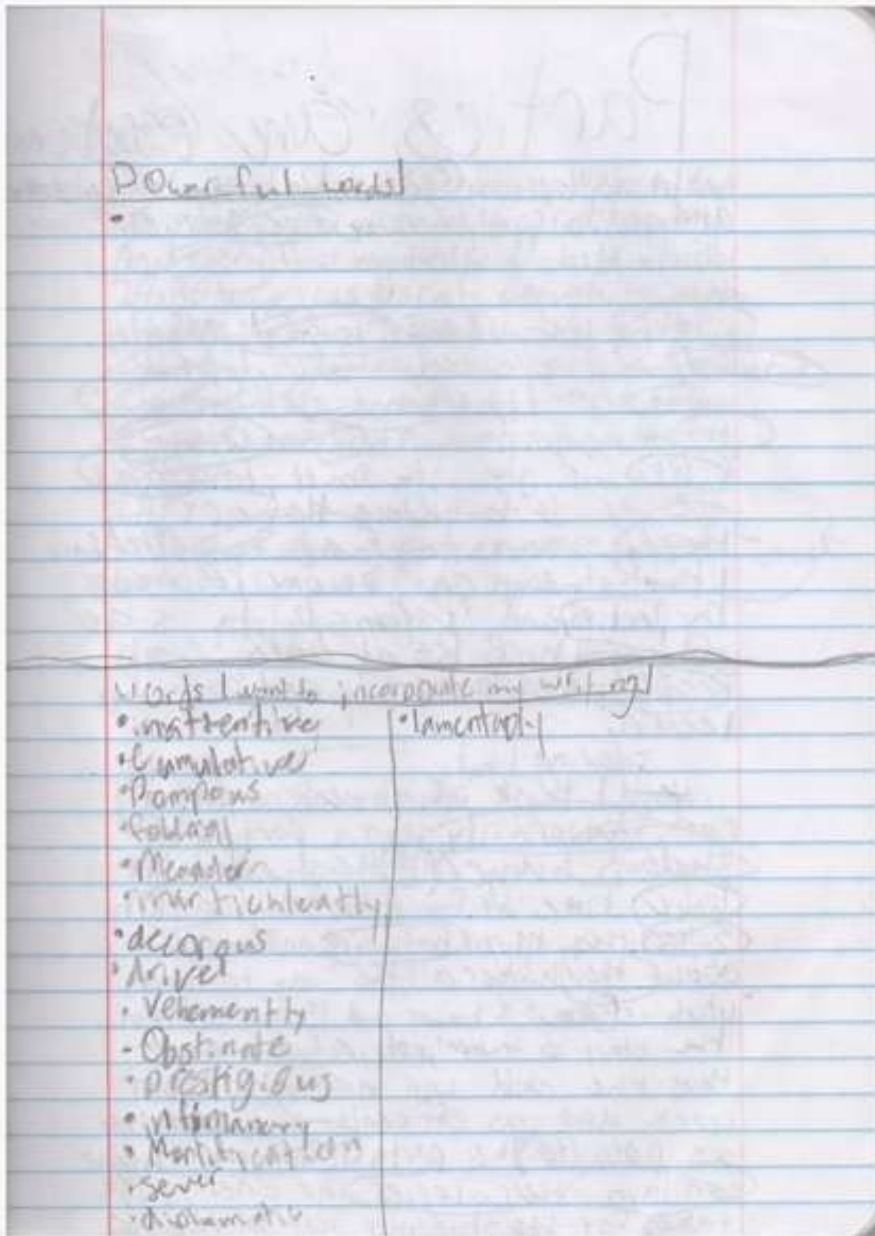 Powerful words!
•
words I want to incorporate my writing!
• inattentive
• Cumulative
• Pompous
• Meander
• inarticuleatly
• decorous
• drivel
• Vehemently
- Obstinate
• prestigious
• infirmarery
• Mortification
• sever
• diplomatic
• lamentably